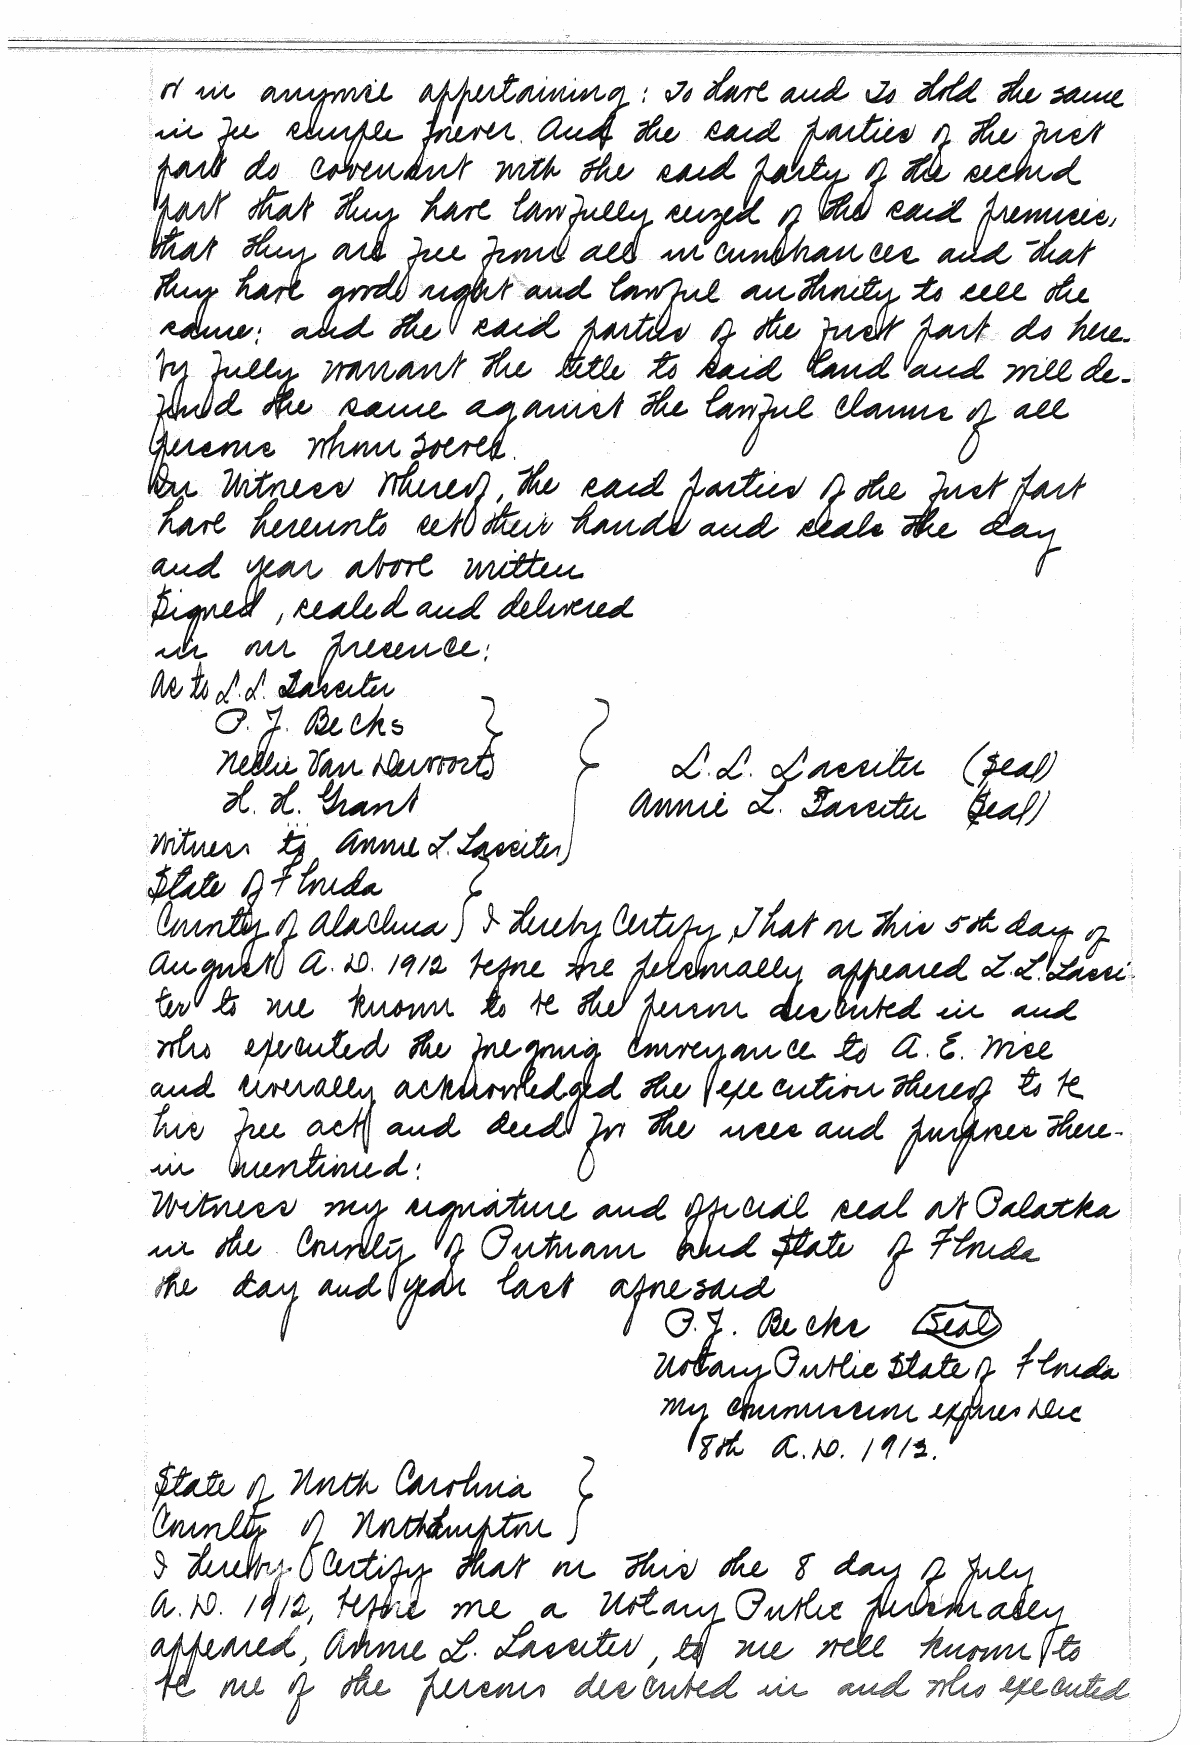 or in anywise appertaining: To Have and To Hold the same
in fee simple forever. And the said parties of the first
part do covenant with the said party of the second
part that they have lawfully seized of the said premises,
that they are free from all incumbrances and that
they have good right and lawful authority to sell the
same: and the said parties of the first part do here-
by fully warrant the title to said land and will de-
fend the same against the lawful claims of all
persons whom soever.
In Witness Whereof, the said parties of the first part
have hereunto set their hands and seals the day
and year above written
Signed, sealed and delivered
in our presence:
As to L. L. Lassiter
P. J. Becks
Nellie Van Dervoort
H. H. Grant
L. L. Lassiter (Seal)
Annie L. Lassiter (Seal)
Witness to Annie L. Lassiter
State of Florida
County of Alachua } I hereby Certify, That on this 5th day of
August A. D. 1912 before me personally appeared L. L. Lassi-
ter to me known to be the person described in and
who executed the foregoing conveyance to A. E. Wise
and severally acknowledged the execution thereof to be
his free act and deed for the uses and purposes there-
in mentioned:
Witness my signature and official seal at Palatka
in the County of Putnam and State of Florida
the day and year last aforesaid
P. J. Becks (Seal)
Notary Public State of Florida
My commission expires Dec
8th A. D. 1913.
State of North Carolina
County of Northampton
I hereby Certify that on this the 8 day of July
A. D. 1912, before me a Notary Public personally
appeared, Annie L. Lassiter, to me well known to
be one of the persons described in and who executed